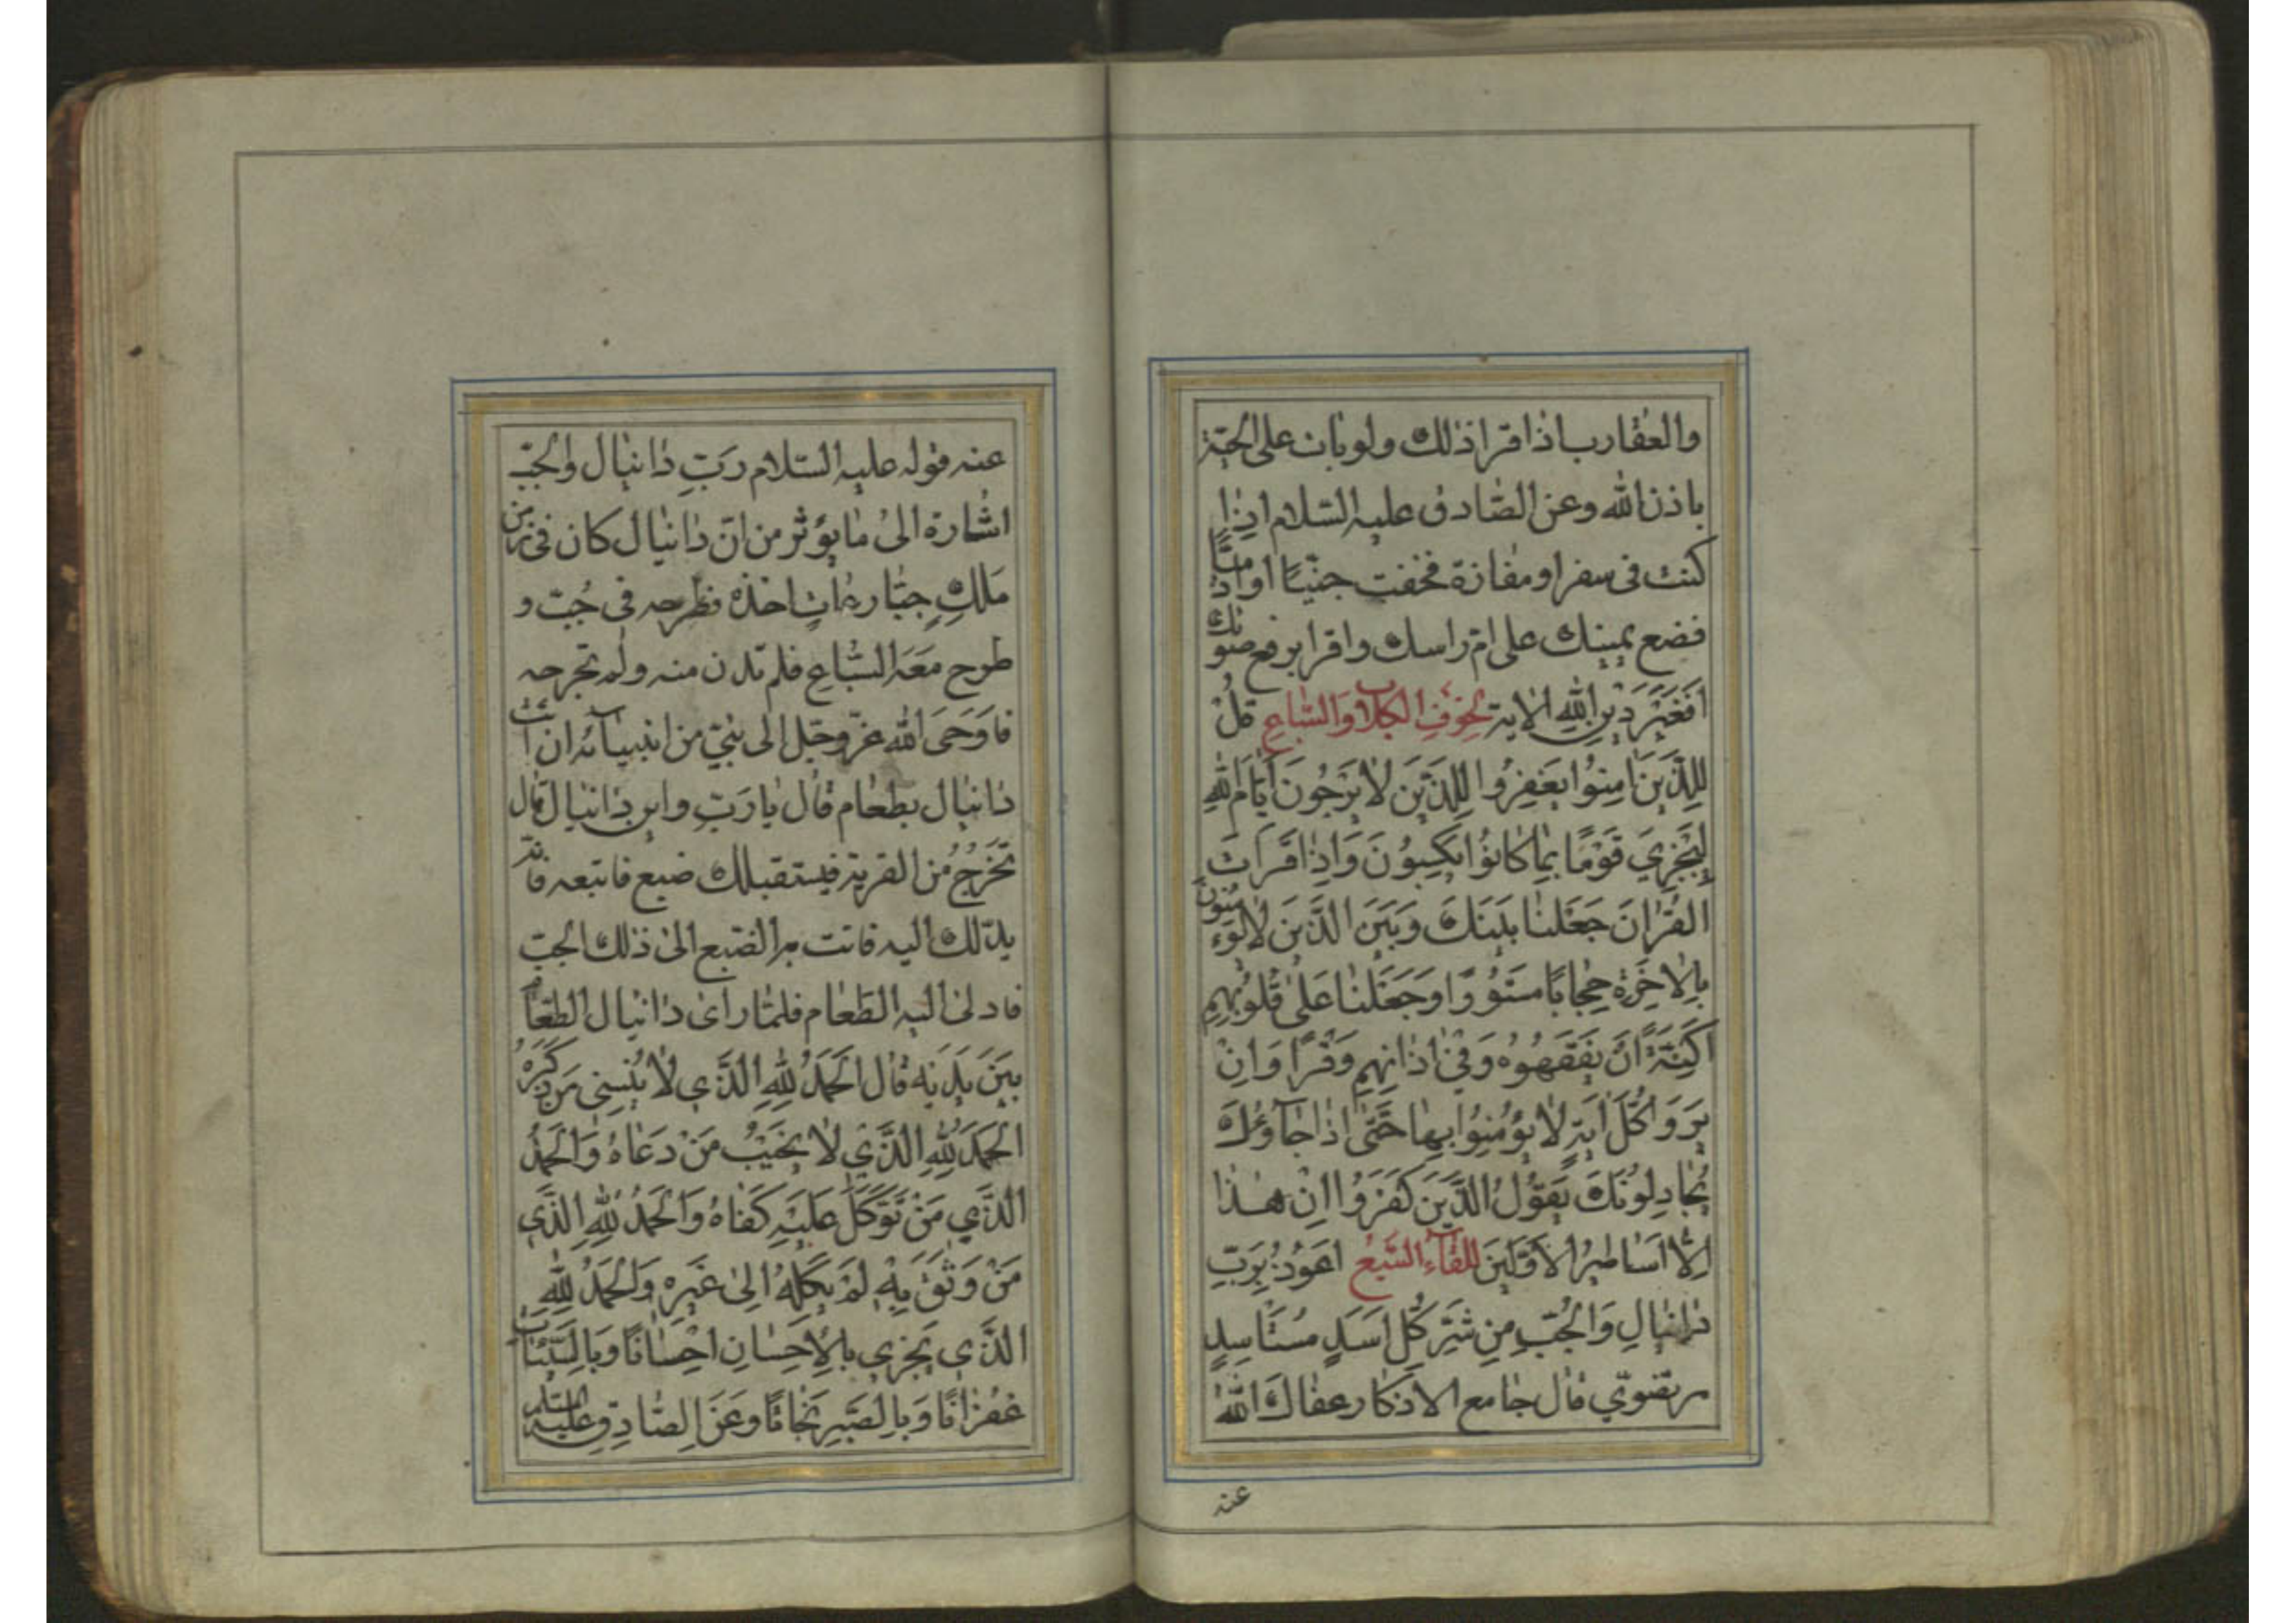 والعقارب اذا قرا ذلك ولو بات على الحيّة
باذن الله وعن الصّادق عليه السّلام اذا
كنت فى سفر او مفازة فخفت جنّيّا او ادميّا
فضع يمينك على امّ راسك واقرا برفع صوتك
اَفَغَيْرَ دينِ اللهِ الاية لخوف الكلاب والسّباع قُلْ
لِلَّذينَ امَنُوا يَغْفِرُوا لِلَّذينَ لا يَرْجُونَ اَيّامَ اللهِ
لِيَجْزِيَ قَوْمًا بِما كانُوا يَكْسِبُونَ وَاِذا قَرَاْتَ
القُرْانَ جَعَلْنا بَيْنَكَ وَبَيْنَ الَّذينَ لا يُؤْمِنُونَ
بِالاخِرَةِ حِجابًا مَسْتُورًا وَجَعَلْنا عَلى قُلُوبِهِمْ
اَكِنَّةً اَنْ يَفْقَهُوهُ وَفي اذانِهِمْ وَقْرًا وَاِنْ
يَرَوْا كُلَّ ايَةٍ لا يُؤْمِنُوا بِها حَتّى اِذا جآؤُكَ
يُجادِلُونَكَ يَقُولُ الَّذينَ كَفَرُوا اِنْ هذا
اِلّا اَساطيرُ الاَوَّلينَ للقآء السّبع اَعُوذُ بِرَبِّ
دانِيالِ وَالْجُبِّ مِنْ شَرِّ كُلِّ اَسَدٍ مُسْتَاْسِدٍ
مرتضوي قال جامع الاذكار عفاك الله
عنه
عنه قوله عليه السّلام رَبِّ دانيال والجبّ
اشارة الى ما يؤثر من انّ دانيال كان فى زمن
مَلِكٍ جبّار عاتٍ اخذه فطرحه فى جُبّ و
طرح مَعَه السّباع فلم تدن منه ولم تجرحه
فاَوحَى الله عزّ وجلّ الى نبيّ من انبيآئه ان ائت
دانيال بطعام قال يا رَبّ واين دانيال قال
تخرُجُ من القرية فيستقبلك ضبع فاتبعه فانّه
يدلّك اليه فاتت به الضّبع الى ذلك الجبّ
فادلى اليه الطّعام فلمّا راى دانيال الطّعام
بَيْنَ يَدَيْه قال اَلْحَمْدُ لِلّهِ الَّذي لا يَنْسى مَنْ ذَكَرَهُ
اَلْحَمْدُ لِلّهِ الَّذي لا يُخَيِّبُ مَنْ دَعاهُ وَالْحَمْدُ
الَّذي مَنْ تَوَكَّلَ عَلَيْهِ كَفاهُ وَالْحَمْدُ لِلّهِ الَّذي
مَنْ وَثِقَ بِهِ لَمْ يَكِلْهُ اِلى غَيْرِهِ وَالْحَمْدُ لِلّهِ
الَّذي يَجْزي بِالاِحْسانِ اِحْسانًا وَبِالسَّيِّئاتِ
غُفْرانًا وَبِالصَّبْرِ نَجاتًا وَعَنِ الصّادِقِ عليه السّلم